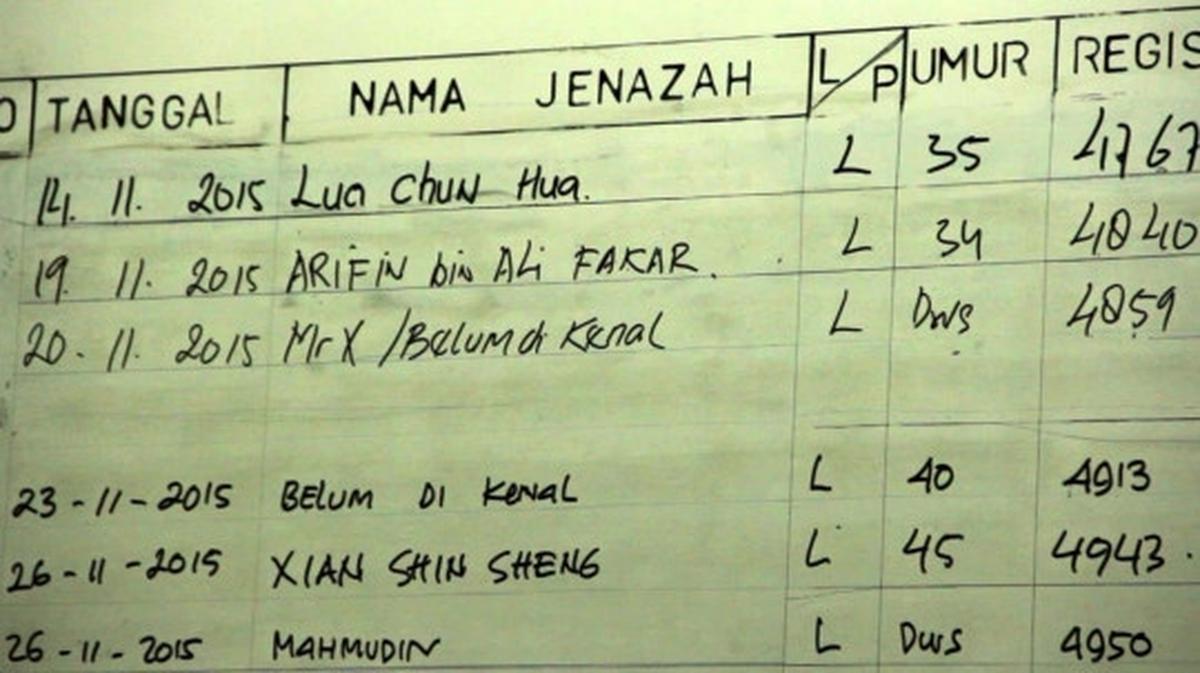 O TANGGAL NAMA JENAZAH L/P UMUR REGIS
14. 11. 2015 Lua Chun Hua. L 35 4767
19. 11. 2015 ARIFIN bin Ali FAKAR. L 34 4840
20. 11. 2015 Mr X /Belum di Kenal L Dws 4859
23-11-2015 BELUM DI KENAL L 40 4913
26-11-2015 XIAN SHIN SHENG L 45 4943.
26-11-2015 MAHMUDIN L Dws 4950